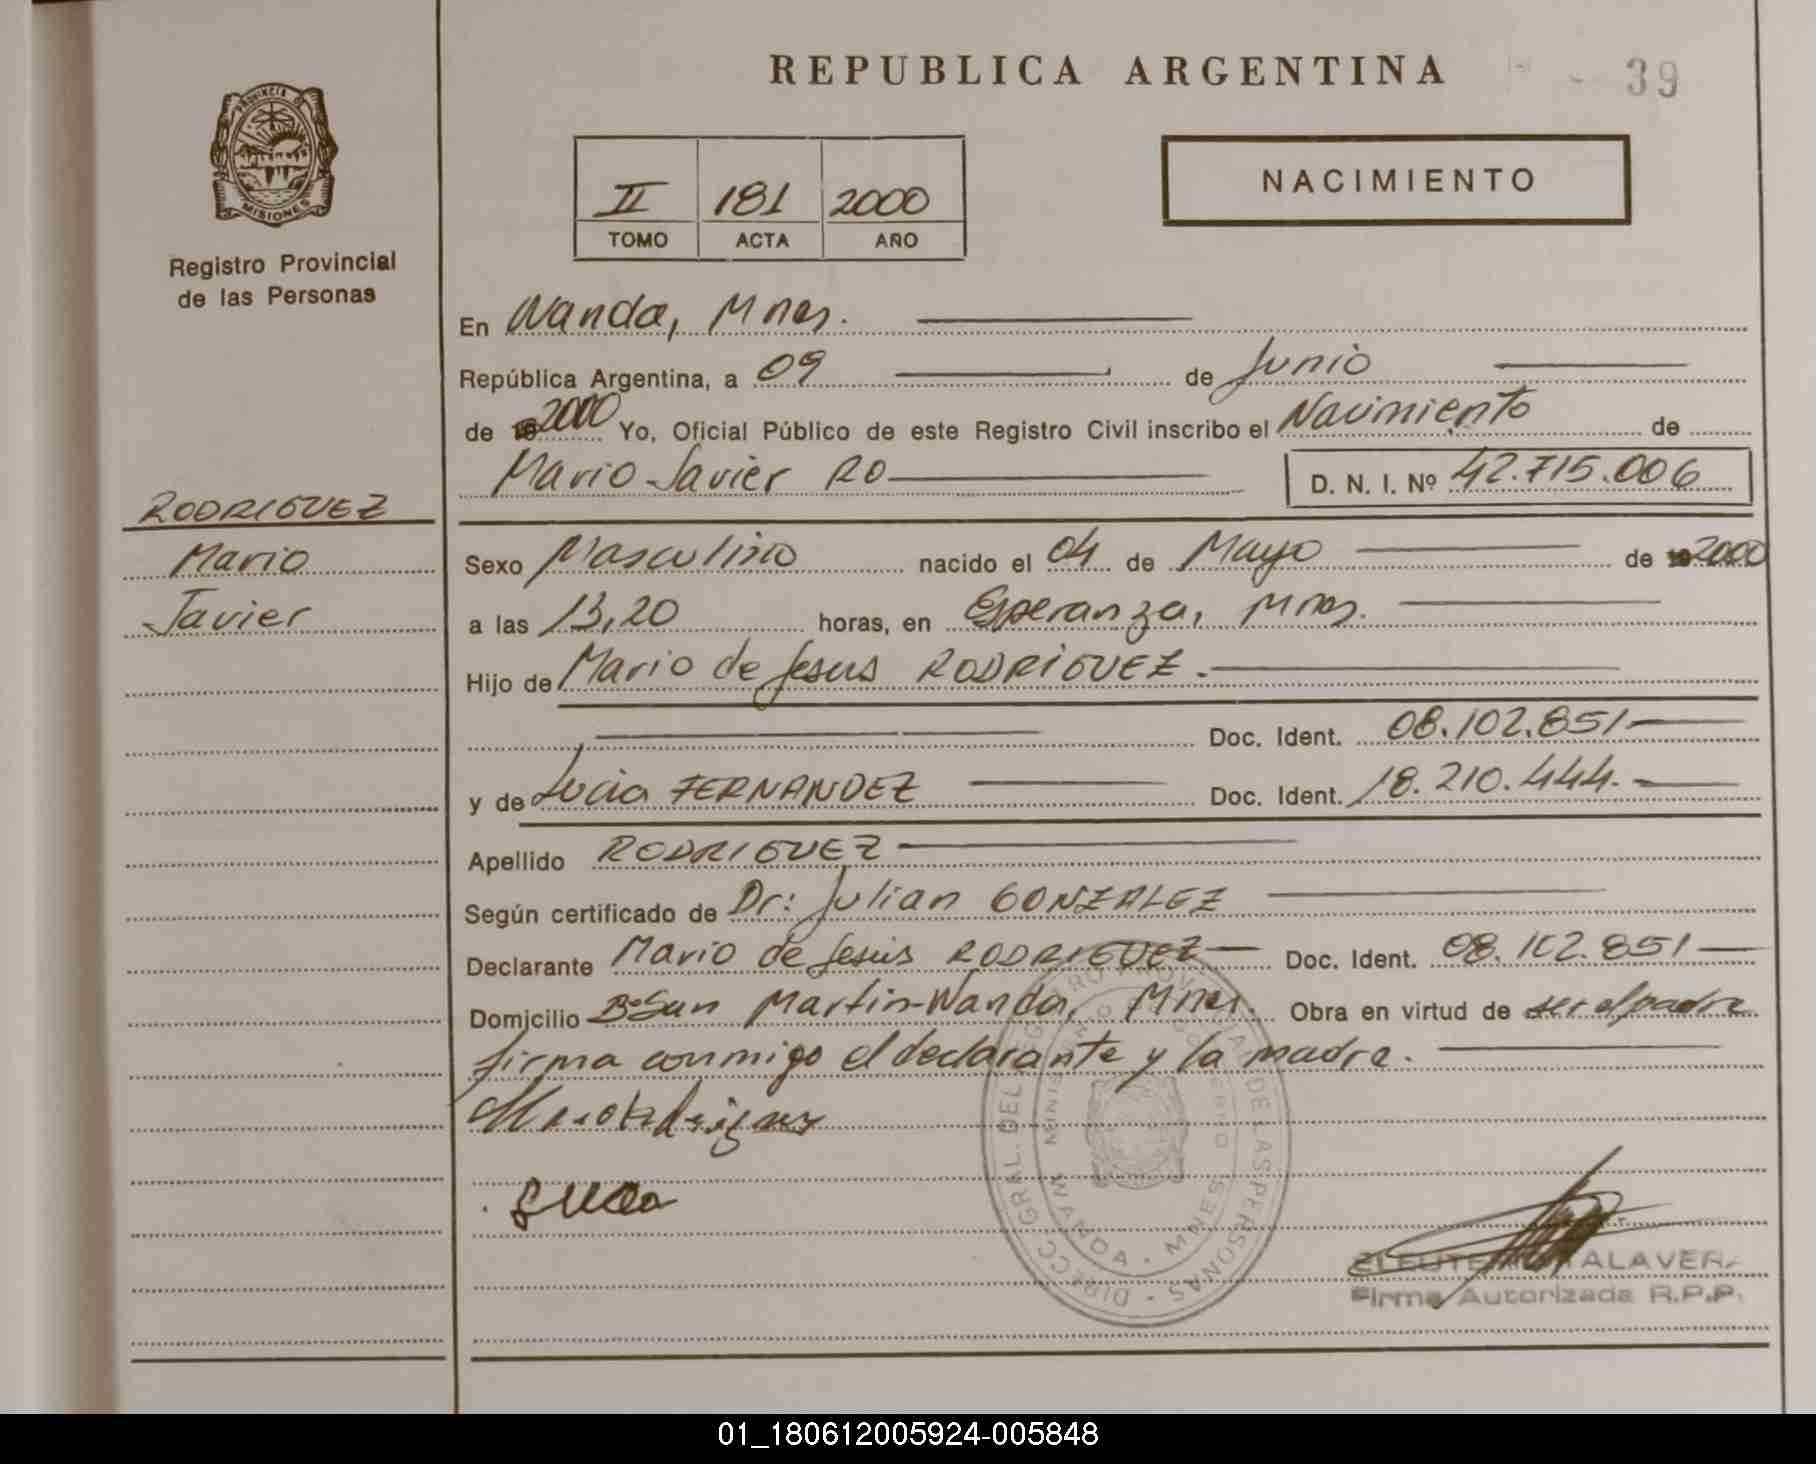 REPUBLICA ARGENTINA
39
PROVINCIA DE
MISIONES
Registro Provincial
de las Personas
II 181 2000
TOMO ACTA AÑO
NACIMIENTO
En Wanda, Mnes.
República Argentina, a 09 de Junio
de 2000 Yo, Oficial Público de este Registro Civil inscribo el Nacimiento de
Mario Javier RO D. N. I. Nº 42.715.006
RODRIGUEZ
Mario
Javier
Sexo Masculino nacido el 04 de Mayo de 2000
a las 13,20 horas, en Esperanza, Mnes.
Hijo de Mario de Jesus RODRIGUEZ.
Doc. Ident. 08.102.851
y de Lucia FERNANDEZ Doc. Ident. 18.210.444.
Apellido RODRIGUEZ
Según certificado de Dr: Julian GONZALEZ
Declarante Mario de Jesús RODRIGUEZ Doc. Ident. 08.102.851
Domicilio Bº San Martin-Wanda, Mnes. Obra en virtud de ser el padre
firma conmigo el declarante y la madre.
DIRECC. GRAL. DEL REGISTRO PROVINCIAL DE LAS PERSONAS
MINISTERIO DE GOBIERNO
WANDA - MNES
ALAVERA
Firma Autorizada R.P.P.
01_180612005924-005848